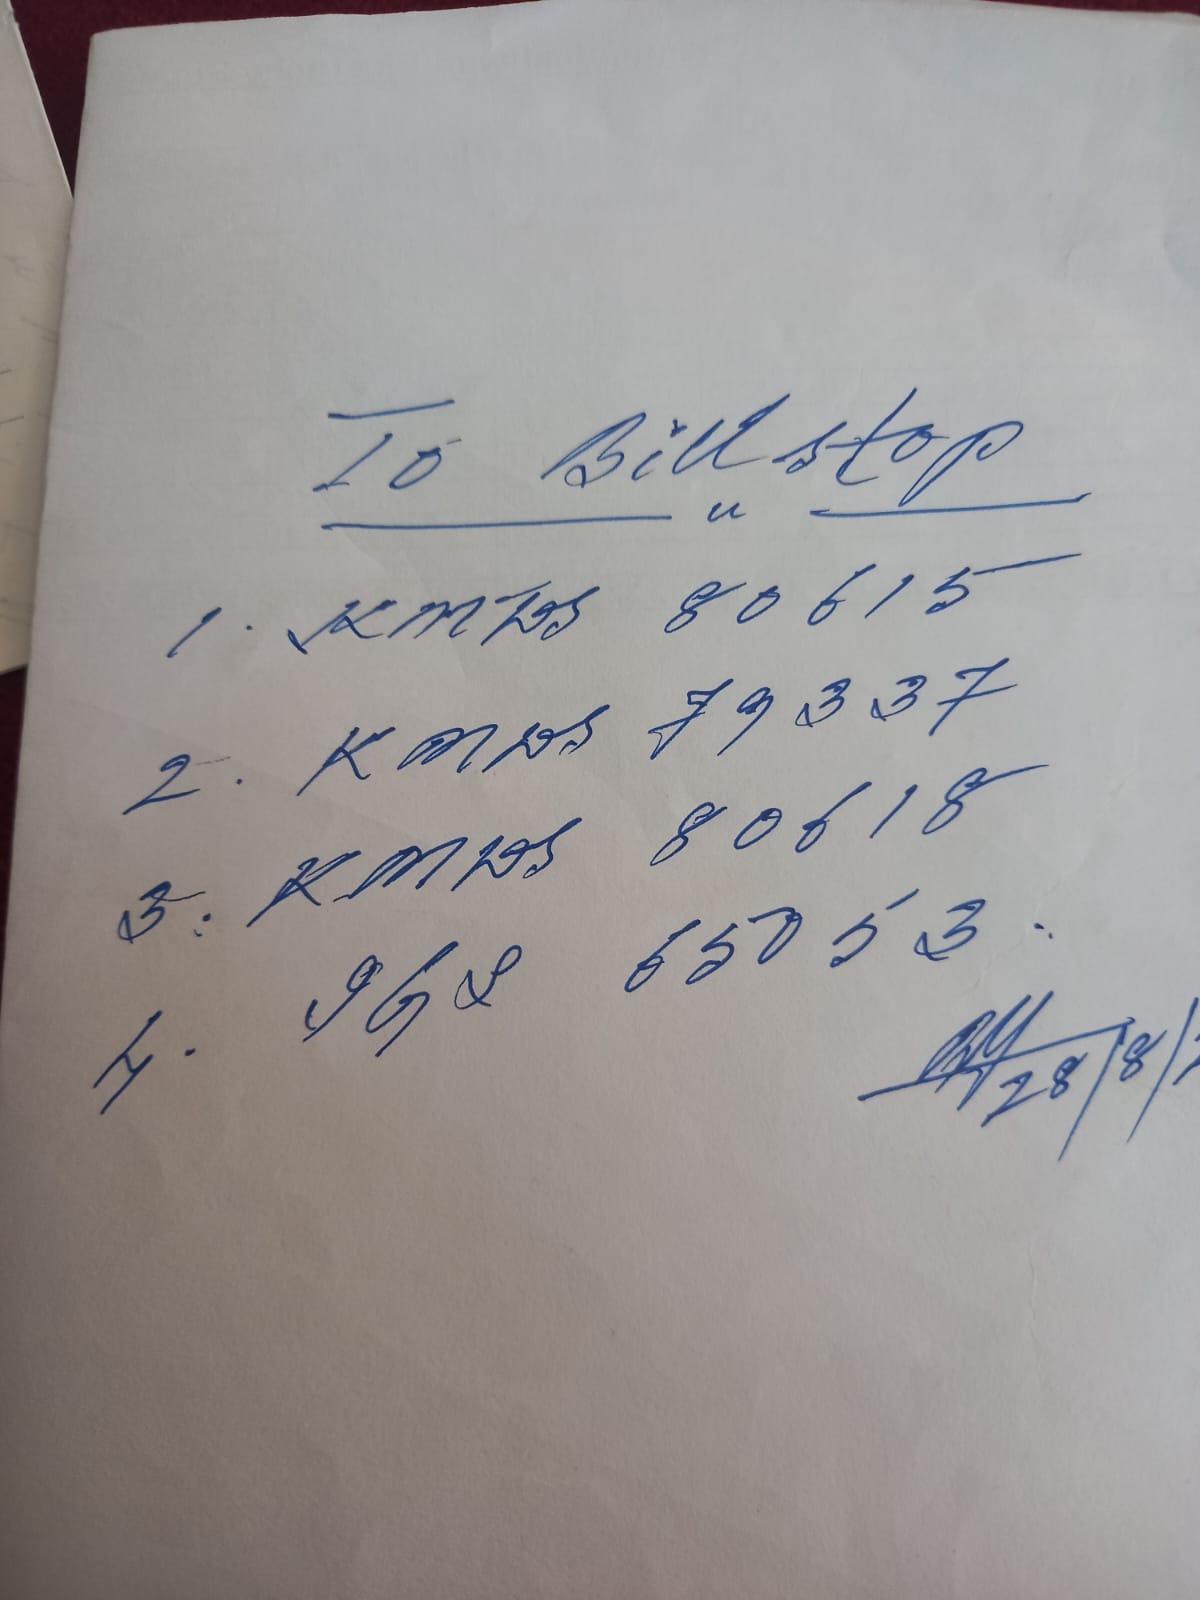 To Bill stop
"
1. KMBS 80615
2. KMBS 79337
3. KMBS 80618
4. 968 65053.
28/8/